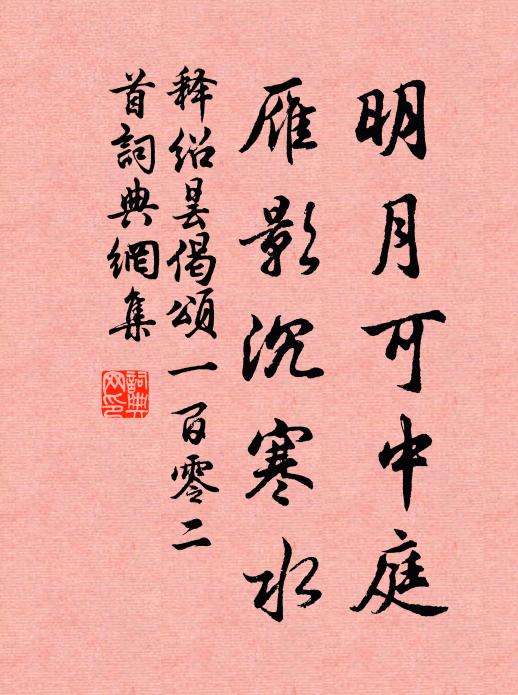 明月可中庭
雁影沉寒水
释绍昙偈頌一百零二
首詞典網集
詞典
网印